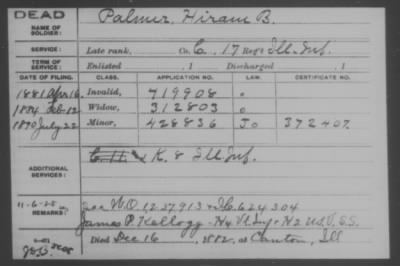 DEAD
NAME OF SOLDIER: Palmer, Hiram B.
SERVICE: Late rank, Co. C, 17 Reg't Ill. Inf.
TERM OF SERVICE: Enlisted , 1 Discharged , 1
DATE OF FILING. CLASS. APPLICATION NO. LAW. CERTIFICATE NO.
1881 Apr 16 Invalid, 419908
1884 Feb 12 Widow, 312803
1890 July 22 Minor, 428836 Jo 372407.
ADDITIONAL SERVICES: K. 8 Ill Inf.
11-6-25
REMARKS: See W.O. 1237913 624304
James P. Kellogg - H 4 Vt. Inf + H 2 U.S.V.S.S.
Died Dec 16, 1882, at Canton, Ill